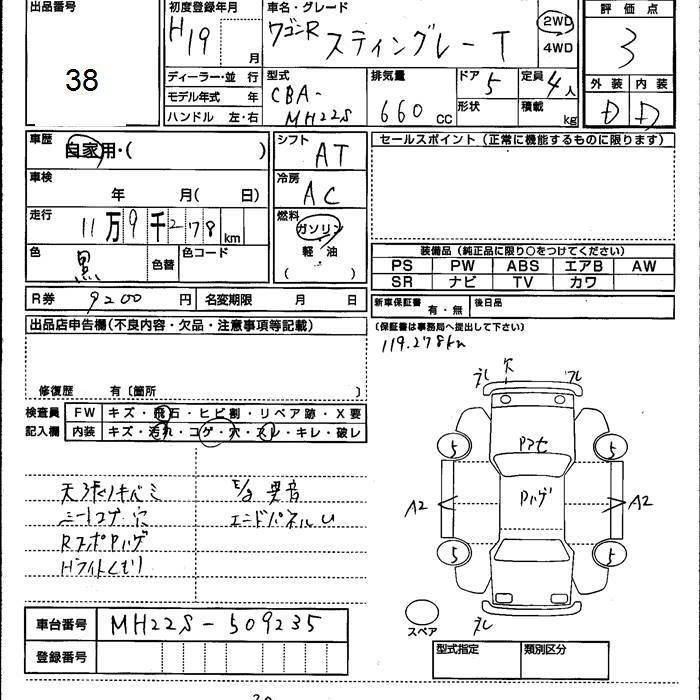 出品番号
38
初度登録年月
H19 月
車名・グレード
ワゴンR スティングレー T
2WD
4WD
評価点
3
外装 内装
D D
ディーラー・並行
モデル年式 年
ハンドル 左・右
型式
CBA-
MH22S
排気量
660 CC
ドア
5
形状
定員
4人
積載
kg
車歴
自家用・( )
車検
年 月( 日)
走行
11万9千278 km
色
黒
色替
色コード
シフト
AT
冷房
AC
燃料
ガソリン
軽油
( )
セールスポイント(正常に機能するものに限ります)
装備品(純正品に限り○をつけてください)
PS PW ABS エアB AW
SR ナビ TV カワ
R券 9200 円
名変期限 月 日
新車保証書 有・無
後日品
(保証書は事務局へ提出して下さい)
119.278km
出品店申告欄(不良内容・欠品・注意事項等記載)
修復歴 有〔箇所 〕
検査員
記入欄
FW キズ・飛石・ヒビ割・リペア跡・X要
内装 キズ・汚れ・コゲ・穴・スレ・キレ・破レ
天張りキバミ
シートコゲ穴
RスポPハゲ
Hライトくもり
E/g 異音
エンドパネルU
スレ 欠 スレ
5 5
Pアセ
Pハゲ
A2 A2
5 5
スレ
スペア
車台番号 MH22S-509235
登録番号
型式指定 類別区分